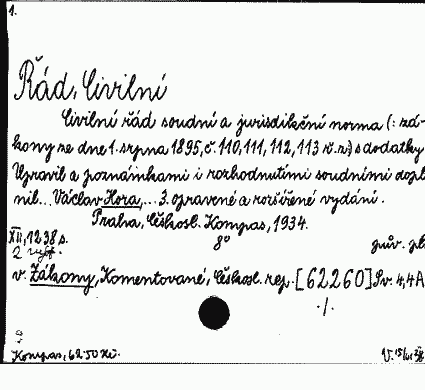 1.
Řád, Civilní
Civilní řád soudní a jurisdikční norma (: zá-
kony ze dne 1. srpna 1895, č. 110, 111, 112, 113 ř. z.) s dodatky
Upravil a poznámkami i rozhodnutími soudními dopl
nil... Václav Hora,... 3. opravené a rozšířené vydání.
Praha, Českosl. Kompas, 1934.
XII, 1238 s. 8° pův. pl
2 výtt.
v. Zákony, Komentované, Českosl. rep. [62260] Sv. 4,4A
./.
Kompas, 62.50 Kč.